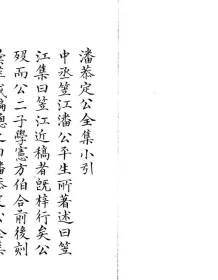 潘恭定公全集小引
中丞笠江潘公平生所著述曰笠
江集曰笠江近稿者旣梓行矣公
歿而公二子學憲方伯合前後刻
成編總之曰潘恭定公全集